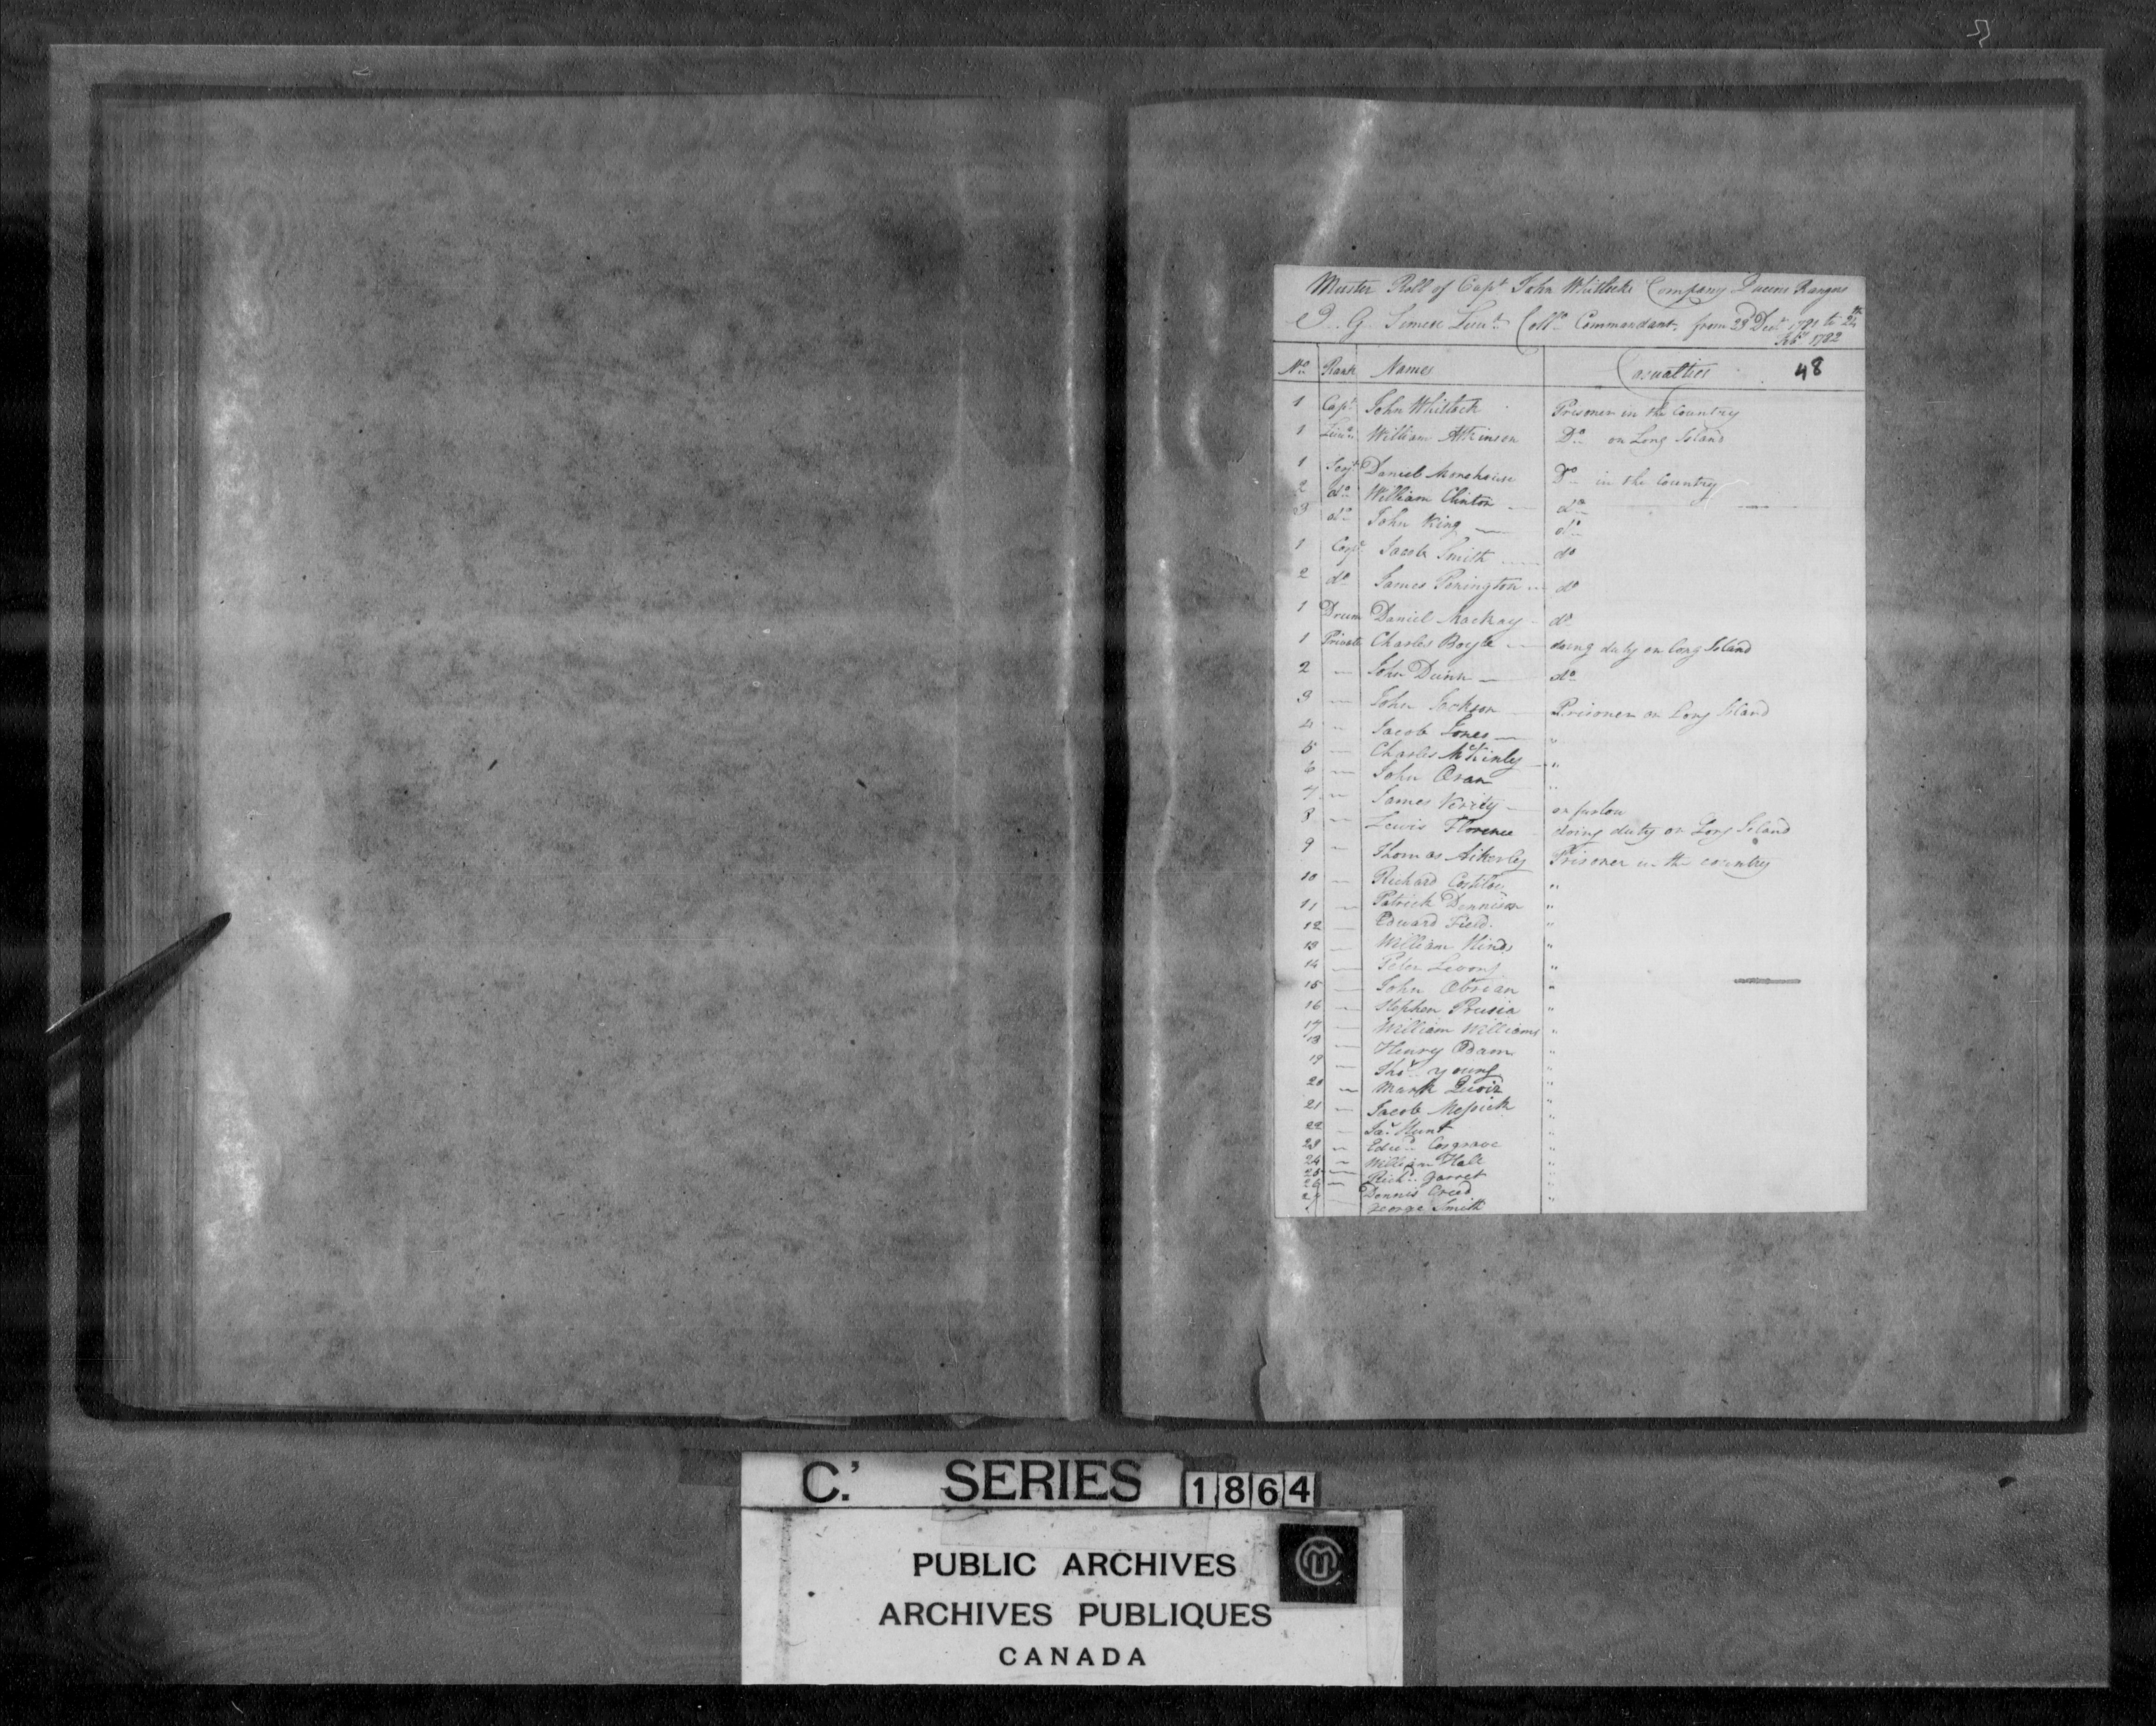 Muster Roll of Capt John Whitlocks Company Queens Rangers
J. G. Simcoe Lieut Coll Commandant, from 23 Decr 1781 to 24th
Feby 1782
No Rank Names Casualties 48
1 Capt John Whitlock Prisoner in the Country
1 Lieut William Atkinson Do on Long Island
1 Serjt Daniel Morehouse Do in the Country
2 do William Clinton do
3 do John King do
1 Corpl Jacob Smith do
2 do James Penington do
1 Drum Daniel Mackay do
1 Private Charles Boyle doing duty on Long Island
2 — John Dunn — do
3 — John Jackson Prisoner on Long Island
4 — Jacob Jones — "
5 — Charles McKinly "
6 — John Oran "
7 — James Verity — on furlou
8 — Lewis Florence doing duty on Long Island
9 — Thomas Aikerly Prisoner in the country
10 — Richard Costiloe "
11 — Patrick Dennison "
12 — Edward Field "
13 — William Hinds "
14 — Peter "
15 — John Obrian "
16 — Stephen Prusia "
17 — William Williams "
18 — Henry Adam "
19 — Thos Young "
20 — Mark "
21 — Jacob Messick "
22 — Jas Hunt "
23 — Edwd Cosgrave "
24 — William Hall "
25 — Richd Garret "
26 — Dennis Creed "
27 — George Smith "
C.' SERIES 1864
PUBLIC ARCHIVES
ARCHIVES PUBLIQUES
CANADA